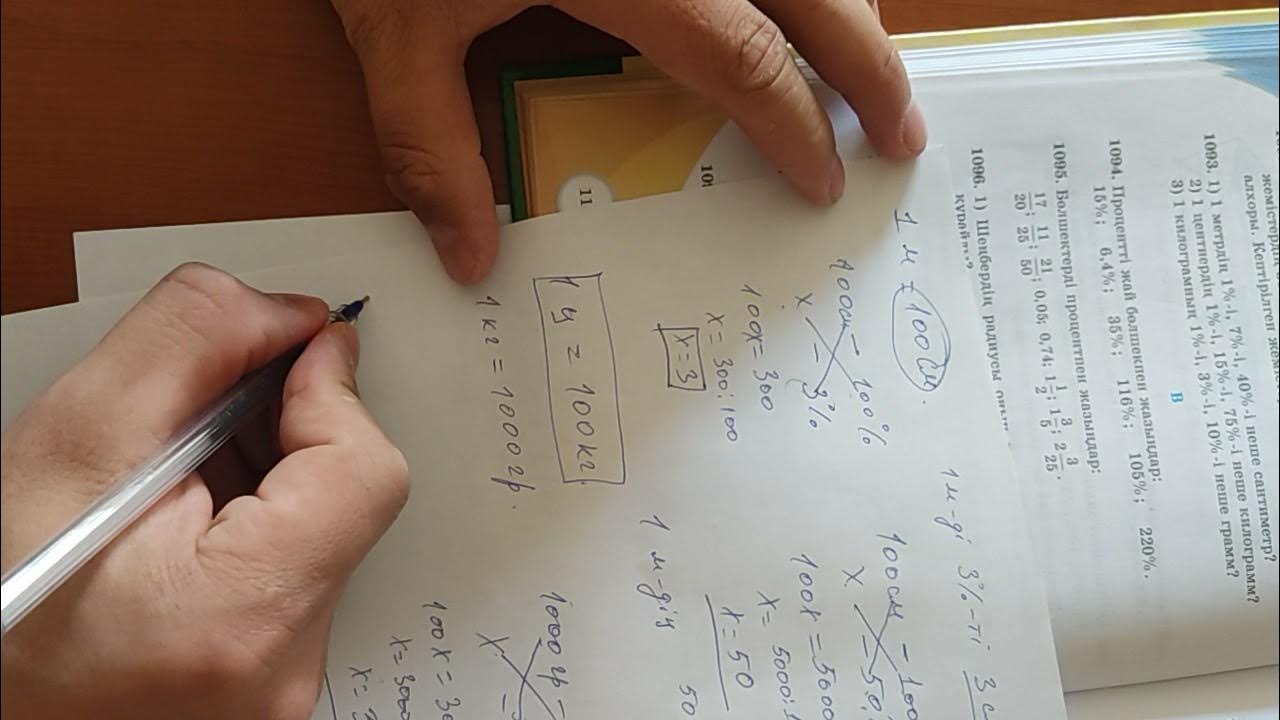 жемістердің
алхоры. Кептірілген
1093. 1) 1 метрдің 1%-і, 7%-і, 40%-і неше сантиметр?
2) 1 центнердің 1%-і, 15%-і, 75%-і неше килограмм?
3) 1 килограмның 1%-і, 3%-і, 10%-і неше грамм?
В
1094. Процентті жай бөлшекпен жазыңдар:
15%; 6,4%; 35%; 116%; 105%; 220%.
1095. Бөлшектерді процентпен жазыңдар:
17/20; 11/25; 21/50; 0,05; 0,74; 1 1/2; 1 3/5; 2 3/25.
1096. 1) Шеңбердің радиусы
құрайды?
11
1 м = 100 см.
100 см – 100%
х – 3%
100х = 300
х = 300 : 100
х = 3
1 ц = 100 кг.
1 кг = 1000 гр.
1 м-ді 3%-ті 3 с
100 см – 100
х – 50
100х = 5000
х = 5000 :
х = 50
1 м-дің 50
1000 гр –
х –
100х = 30
х = 3000
х =